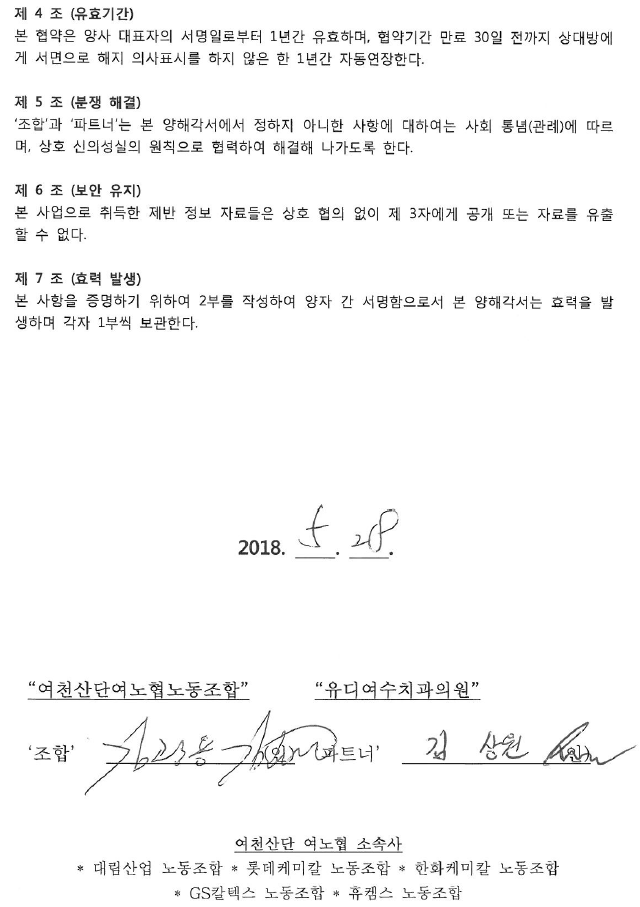 제 4 조 (유효기간)
본 협약은 양사 대표자의 서명일로부터 1년간 유효하며, 협약기간 만료 30일 전까지 상대방에
게 서면으로 해지 의사표시를 하지 않은 한 1년간 자동연장한다.
제 5 조 (분쟁 해결)
'조합'과 '파트너'는 본 양해각서에서 정하지 아니한 사항에 대하여는 사회 통념(관례)에 따르
며, 상호 신의성실의 원칙으로 협력하여 해결해 나가도록 한다.
제 6 조 (보안 유지)
본 사업으로 취득한 제반 정보 자료들은 상호 협의 없이 제 3자에게 공개 또는 자료를 유출
할 수 없다.
제 7 조 (효력 발생)
본 사항을 증명하기 위하여 2부를 작성하여 양자 간 서명함으로서 본 양해각서는 효력을 발
생하며 각자 1부씩 보관한다.
2018. 5 . 28 .
“여천산단여노협노동조합” “유디여수치과의원”
'조합' 파트너' 김 상원 (인)
여천산단 여노협 소속사
* 대림산업 노동조합 * 롯데케미칼 노동조합 * 한화케미칼 노동조합
* GS칼텍스 노동조합 * 휴켐스 노동조합